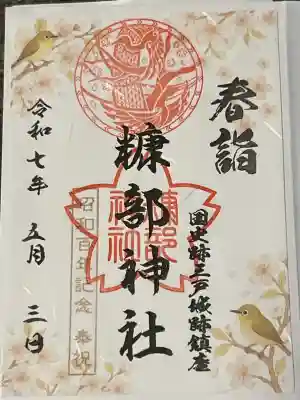 春詣
国史跡三戸城跡鎮座
糠部神社
糠部
神社
昭和百年記念 奉祝
令和七年 五月 三日